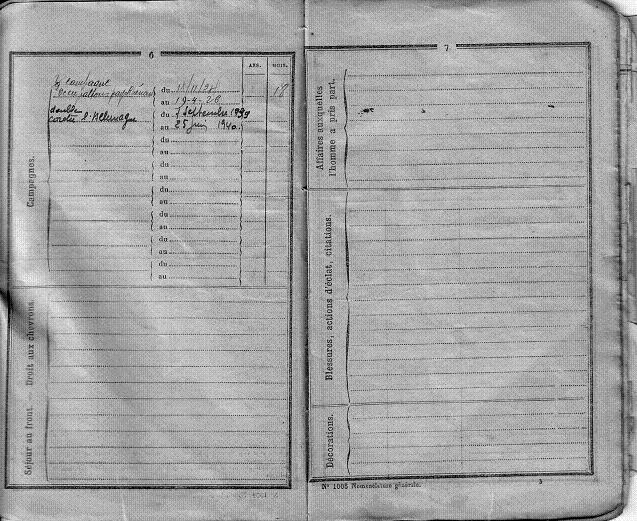 6
ANS. MOIS.
Campagnes.
½ campagne
du 11/11/
18
au 19-4-26
double
contre l'Allemagne
du 7 Septembre 1939
au 25 juin 1940.
du
au
du
au
du
au
du
au
du
au
du
au
Séjour au front. — Droit aux chevrons.
7
Affaires auxquelles
l'homme a pris part.
Blessures, actions d'éclat, citations.
Décorations.
N° 1005 Nomenclature générale.
3